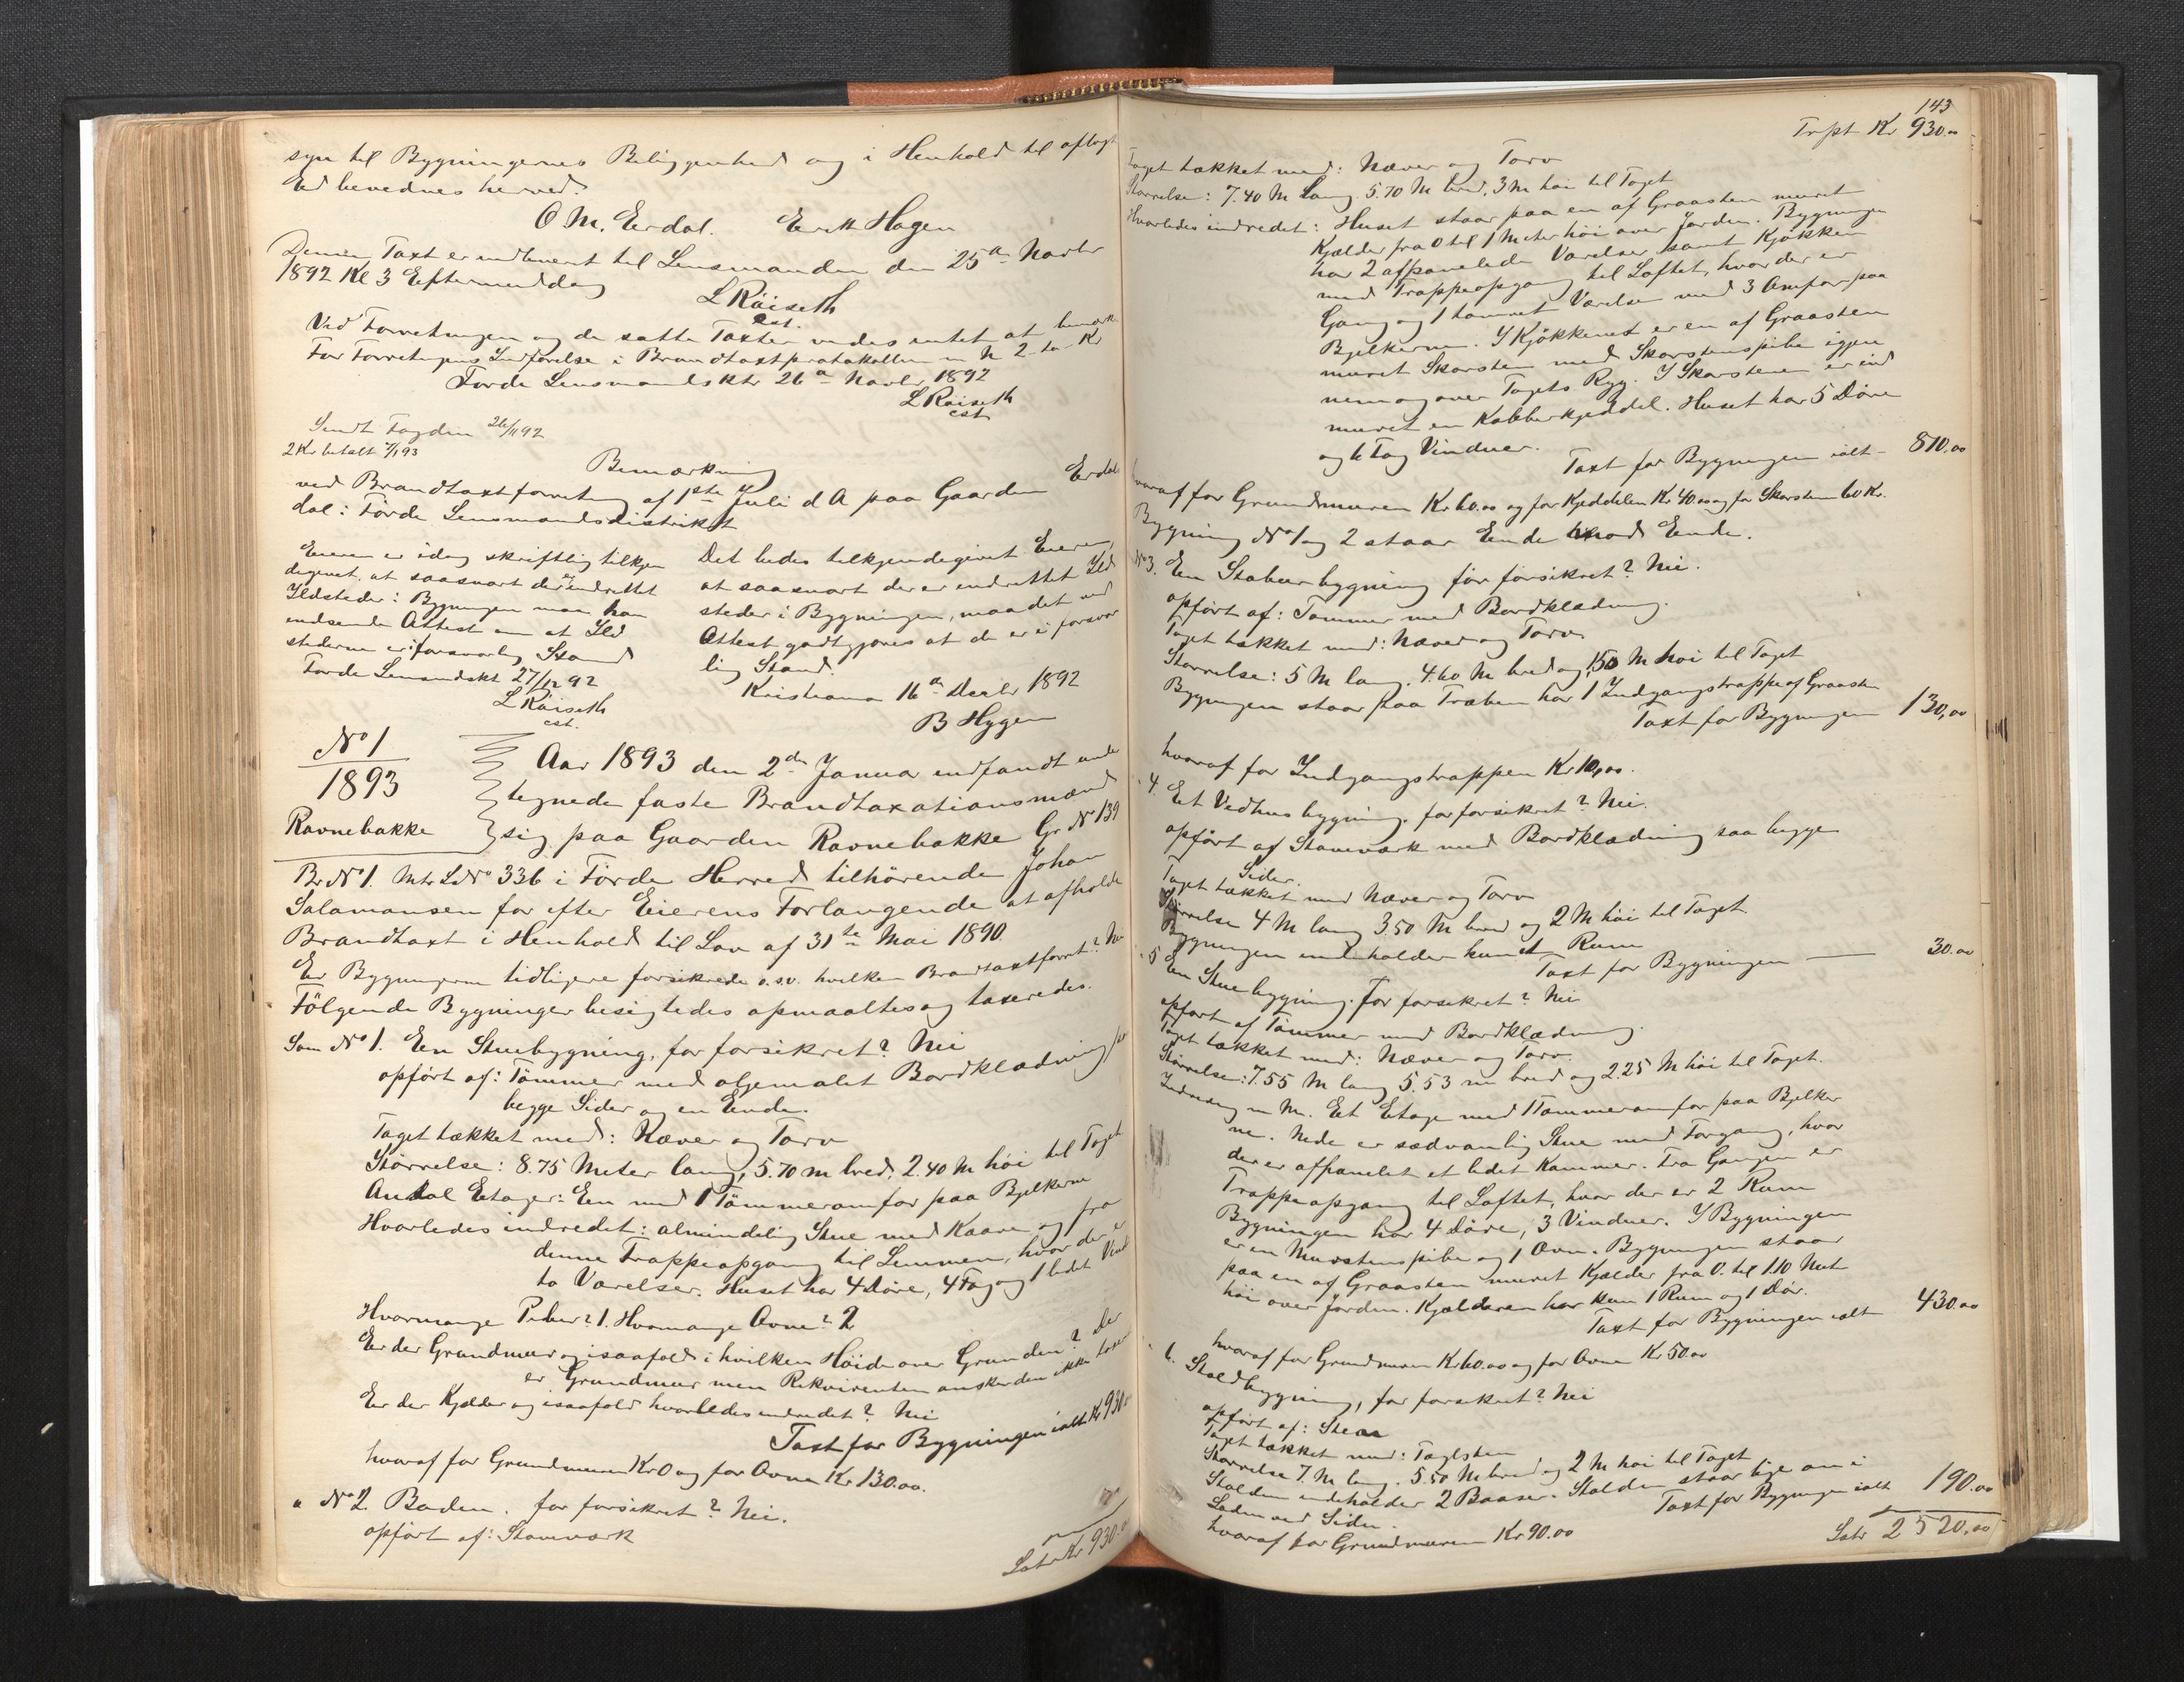 syn til Bygningernes Beliggenhed og i Henhold til aflagt
Ed benednes herved.
O M. Erdal. Erik Hagen
Denne Taxt er indleveret til Lensmanden den 25de Novbr
1892 Kl 3 Eftermiddag
L Räiseth
cst.
Ved Forretningen og de satte Taxter vides intet at bemærke
For Forretningens Indförelse i Brandtaxtprotokollen 2 to Kr
Förde Lensmandsktr 26de Novbr 1892
L Räiseth
cst
Sendt Fogden 26/11 92
2 Kr betalt 7/1 93
Bemærkning
ved Brandtaxtforretning af 1ste Juli d A paa Gaarden Erdal
dal i Förde Lensmandsdistrikt
Eieren er idag skriftlig tilkjen
degivet, at saasnart der er indrettet
Ildsteder i Bygningen maa han
indsende Attest om at Ild
stederne er i forsvarlig Stand
Förde Lensmdskt 27/12 92
L Räiseth
cst.
Det bedes tilkjendegivet Eieren,
at saasnart der er indrettet Ild
steder i Bygningen, maa det ved
Attest godtgjöres at de er i forsvar
lig Stand.
Kristiania 16de Decbr 1892
B Hygen
No 1
1893
Ravnebakke
Aar 1893 den 2den Januar indfandt unde
tegnede faste Brandtaxationsmænd
sig paa Gaarden Ravnebakke Gr No 139
Br No 1. Mtr L No 336 i Förde Herred tilhörende Johan
Salamonsen for efter Eierens Forlangende at afholde
Brandtaxt i Henhold til Lov af 31te Mai 1890.
Er Bygningerne tidligere forsikrede o.s.v. hvilken Brandtaxtforret? Nei
Fölgende Bygninger besigtedes opmaaltes og taxeredes.
Som No 1. En Stuebygning, för forsikret? Nei
opfört af: Tömmer med oljemalet Bordklædning paa
begge Sider og en Ende.
Taget tækket med: Næver og Torv
Störrelse: 8.75 Meter lang, 5.70 m bred, 2.40 M höi til Taget
Antal Etager: En med 1 Tömmeromfar paa Bjelkerne
Hvorledes indredet: almindelig Stue med Kaave og fra
denne Trappeopgang til Lemmen, hvor der er
to Værelser. Huset har 4 Döre, 4 Fag og 1 lidet Vindu
Hvormange Piber? 1. Hvormange Ovne? 2
Er der Grundmur og isaafald i hvilken Höide over Grunden? Der
er Grundmur men Rekvirenten önsker den ikke taxeret
Er der Kjelder og isaafald hvorledes indredet? Nei
Taxt for Bygningen ialt Kr 930.00
hvoraf for Grundmuren Kr 0 og for Ovne Kr 130.00.
" No 2. Boden. för forsikret? Nei.
opfört af: Stavværk
Latr Kr 930.00
143
Trspt Kr 930.00
Taget tækket med: Næver og Torv
Störrelse: 7.40 M Lang. 5.70 M bred. 3 M höi til Taget
Hvorledes indredet: Huset staar paa en af Graasten muret
Kjælder fra 0 til 1 Meter höi over Jorden. Bygningen
har 2 afpanelede Værelser samt Kjökken
med Trappeopgang til Loftet, hvor der er
Gang og 1 tömret Værelse med 3 Omfar paa
Bjelkerne. I Kjökkenet er en af Graasten
muret Skorsten med Skorstenspibe igjen
nem og over Tagets Ryg. I Skorstenen er ind
muret en Kobberkjeddel. Huset har 5 Döre
og 6 Fag Vinduer.
Taxt for Bygningen ialt - 810.00
hvoraf for Grundmuren Kr 60.00 og for Kjeddelen Kr 40.00 og for Skorsten 60 Kr.
Bygning No 1 og 2 staar Ende mod Ende.
No 3. En Stabursbygning för forsikret? Nei.
opfört af: Tömmer med Bordklædning.
Taget tækket med: Næver og Torv
Störrelse: 5 M lang. 4.60 M bred og 1.50 M höi til Taget
Bygningen staar paa Træben har 1 Indgangstrappe af Graasten
Taxt for Bygningen 130,00
hvoraf for Indgangstrappen Kr 10,00.
" 4. Et Vedhusbygning. för forsikret? Nei.
opfört af Stavværk med Bordklædning paa begge
Sider.
Taget tækket med Næver og Torv
Störrelse 4 M lang 3.50 M bred og 2 M höi til Taget.
Bygningen indeholder kun et Rum
Taxt for Bygningen — 30.00
" 5 En Stuebygning. för forsikret? Nei
opfört af Tömmer med Bordklædning.
Taget tækket med: Næver og Torv.
Störrelse: 7.55 M lang 5.53 m bred og 2.25 M höi til Taget.
Indredning m M. Et Etage med 1 Tömmeromfar paa Bjelker
ne. Nede er sædvanlig Stue med Forgang, hvor
der er afpanelet et lidet Kammer. Fra Gangen er
Trappeopgang til Loftet, hvor der er 2 Rum
Bygningen har 4 Döre, 3 Vinduer. I Bygningen
er en Murstenspibe og 1 Ovn. Bygningen staar
paa en af Graasten muret Kjælder fra 0. til 1.10 Meter
höi over Jorden. Kjælderen har kun 1 Rum og 1 Dör.
Taxt for Bygningen ialt 430.00
hvoraf for Grundmuren Kr 60.00 og for Ovne Kr 50.00
" 6. Staldbygning, för forsikret? Nei
opfört af: Sten
Taget tækket med: Taglsten
Störrelse 7. M lang. 5.50 M bred og 2 M höi til Taget
Stalden indeholder 2 Baaser. Stalden staar lige an i
Laden ved Siden.
Taxt for Bygningen ialt 190.00
hvoraf for Grundmuren Kr 90.00
Latr 2520,00